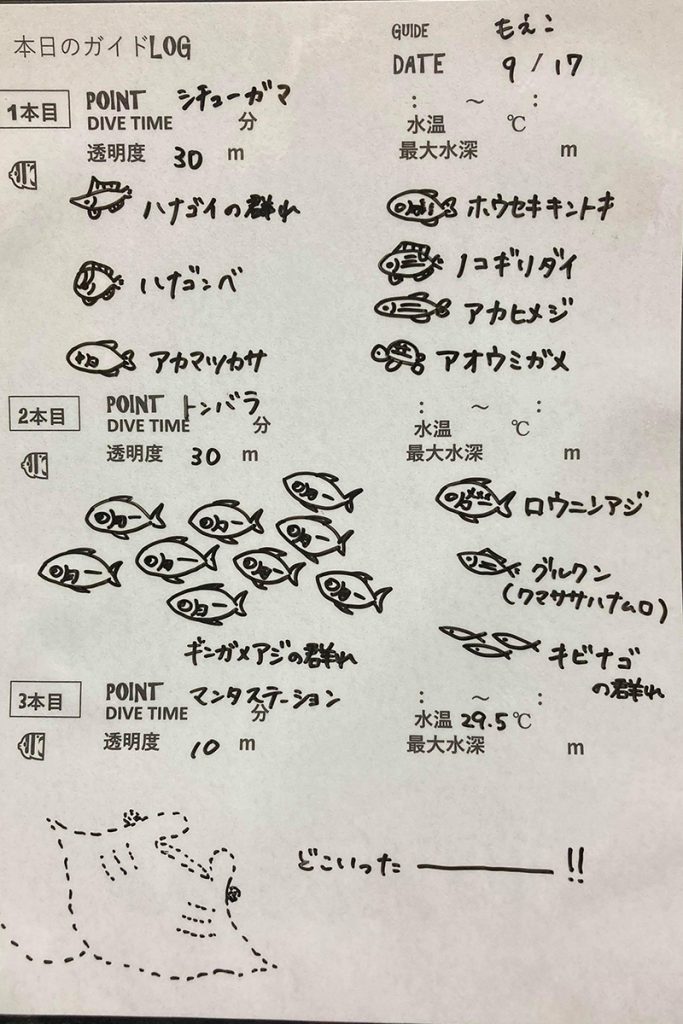 本日のガイドLOG
GUIDE もえこ
DATE 9/17
1本目 POINT シチューガマ : ～ :
DIVE TIME 分 水温 ℃
透明度 30 m 最大水深 m
ハナゴイの群れ ホウセキキントキ
ハナゴンベ ノコギリダイ
アカヒメジ
アカマツカサ アオウミガメ
2本目 POINT トンバラ : ～ :
DIVE TIME 分 水温 ℃
透明度 30 m 最大水深 m
ロウニンアジ
グルクン
(クマササハナムロ)
ギンガメアジの群れ キビナゴ
の群れ
3本目 POINT マンタステーション : ～ :
DIVE TIME 分 水温 29.5℃
透明度 10 m 最大水深 m
どこいったー!!